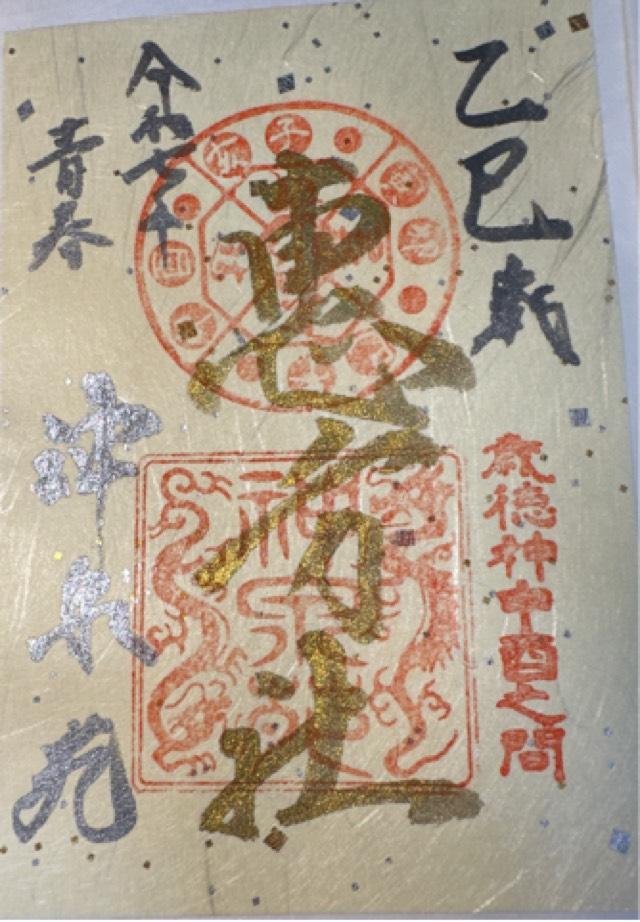 乙巳歳
歳徳神申酉之間
惠方社
令和七年
青春
神泉苑
子